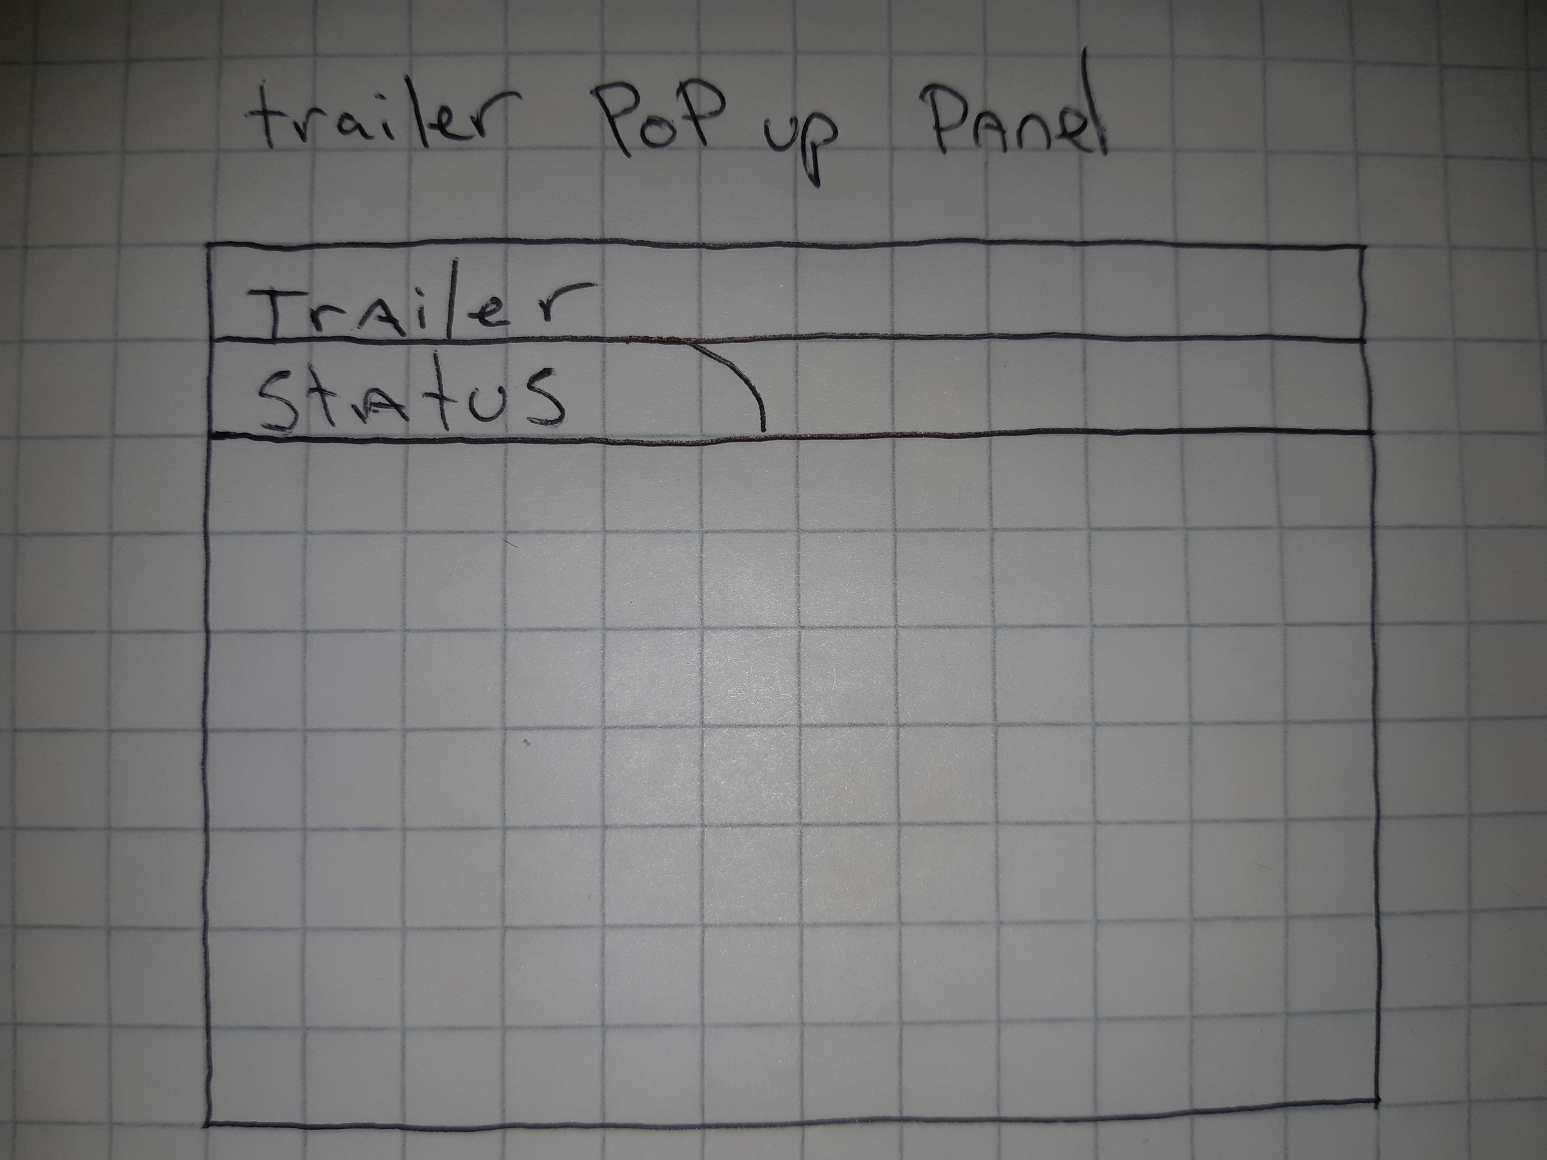 trailer PoP up PAnel
TrAiler
StAtuS